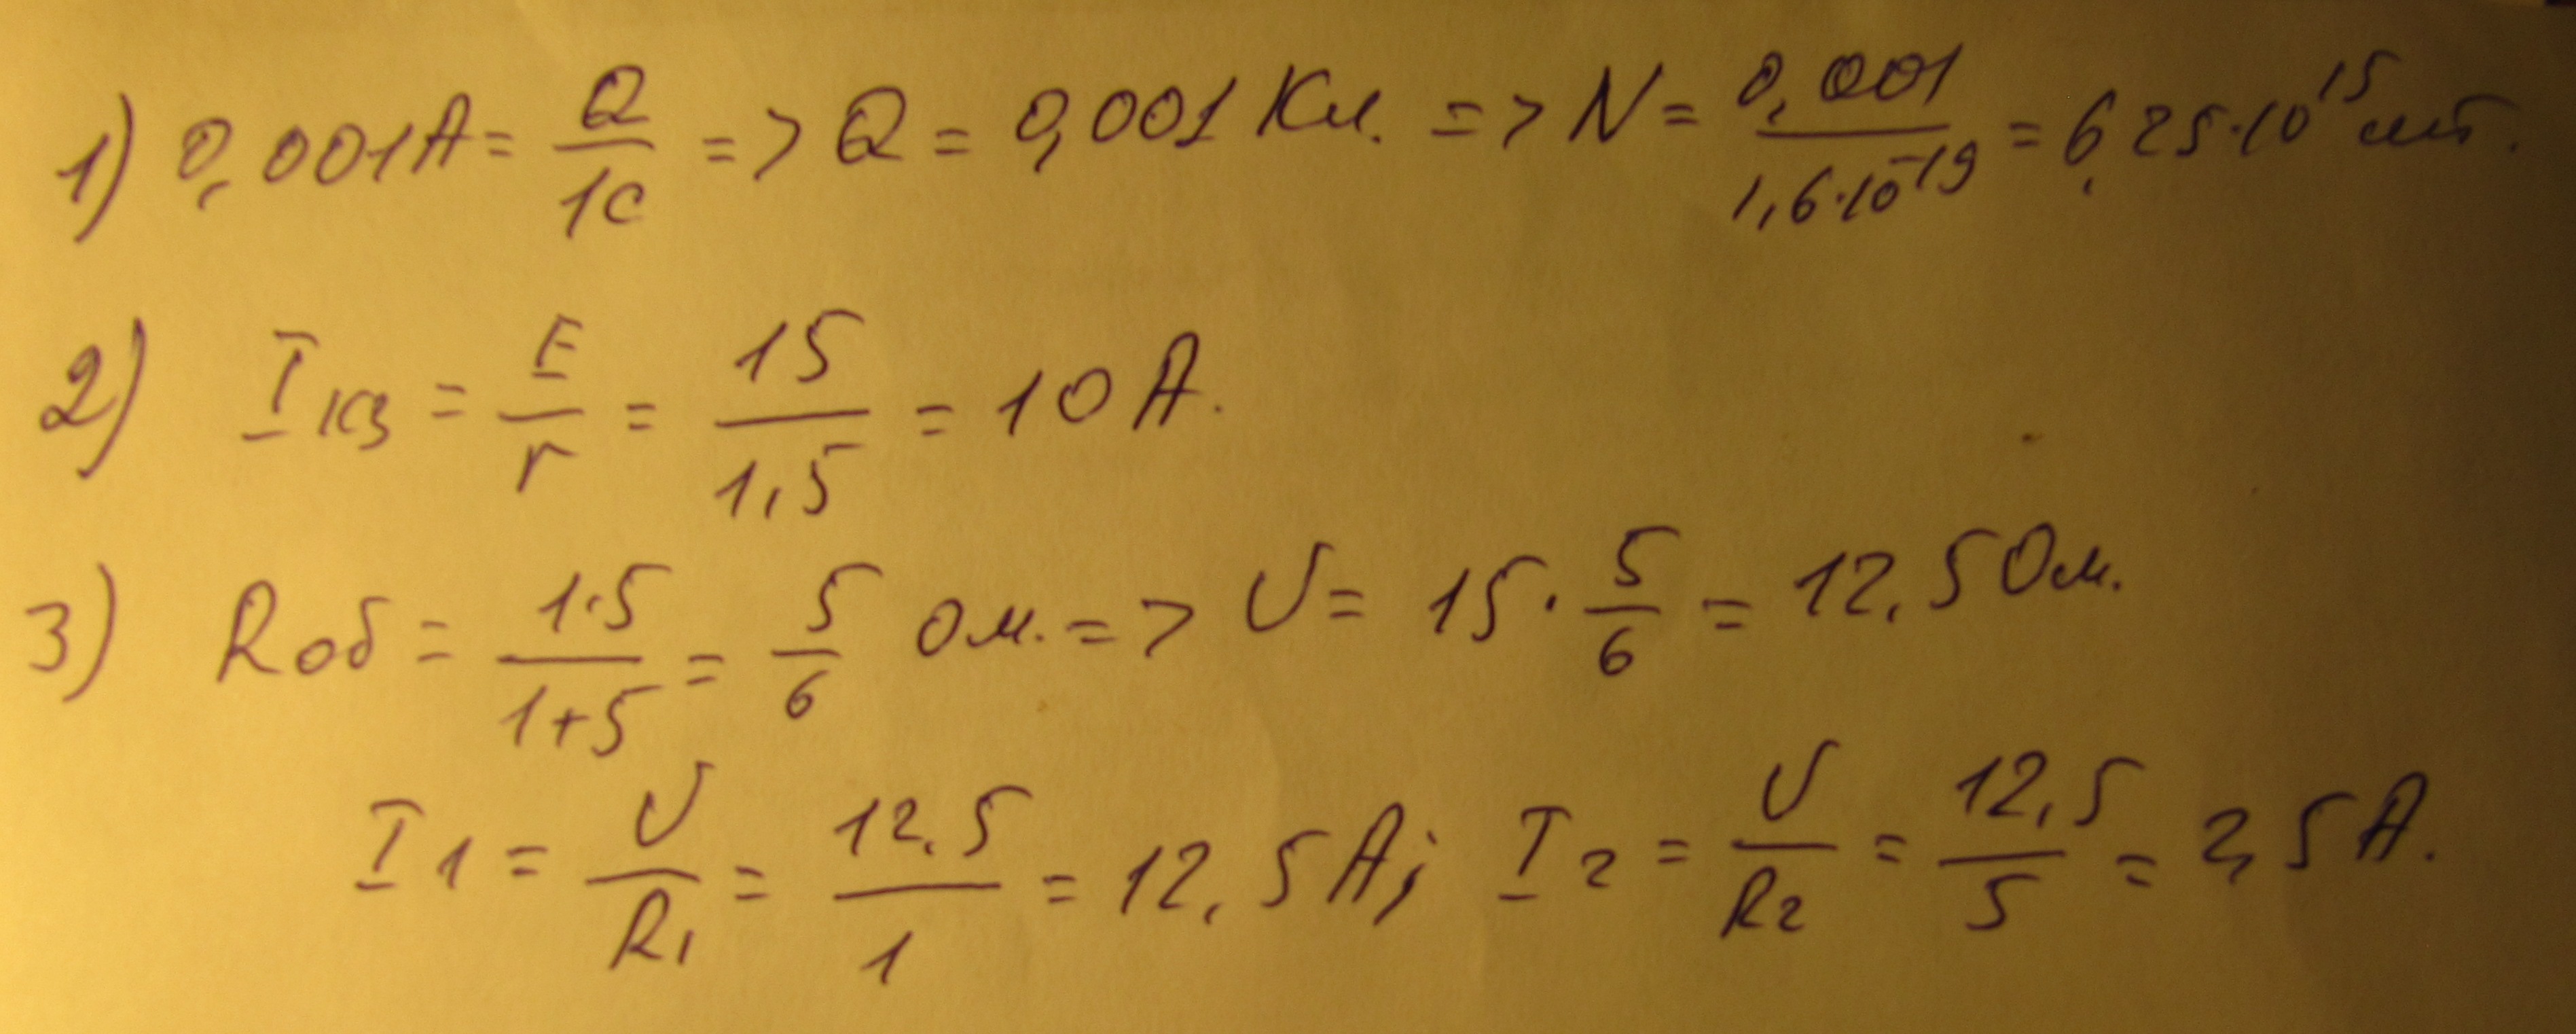 1) 0,001A = Q/1c => Q = 0,001 Кл. => N = 0,001/1,6·10⁻¹⁹ = 6,25·10¹⁵ шт.
2) Iкз = E/r = 15/1,5 = 10 A.
3) Rоб = 1·5/1+5 = 5/6 Ом. => U = 15·5/6 = 12,5 Ом.
I1 = U/R1 = 12,5/1 = 12,5 A; I2 = U/R2 = 12,5/5 = 2,5 A.